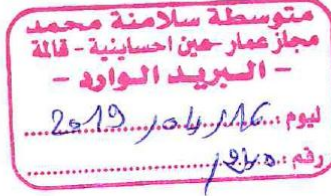 متوسطة سلامنة محمد
مجاز عمار حين احساينية - قالة
- البريد الوارد -
ليوم : 2019/04/16
رقم : 240